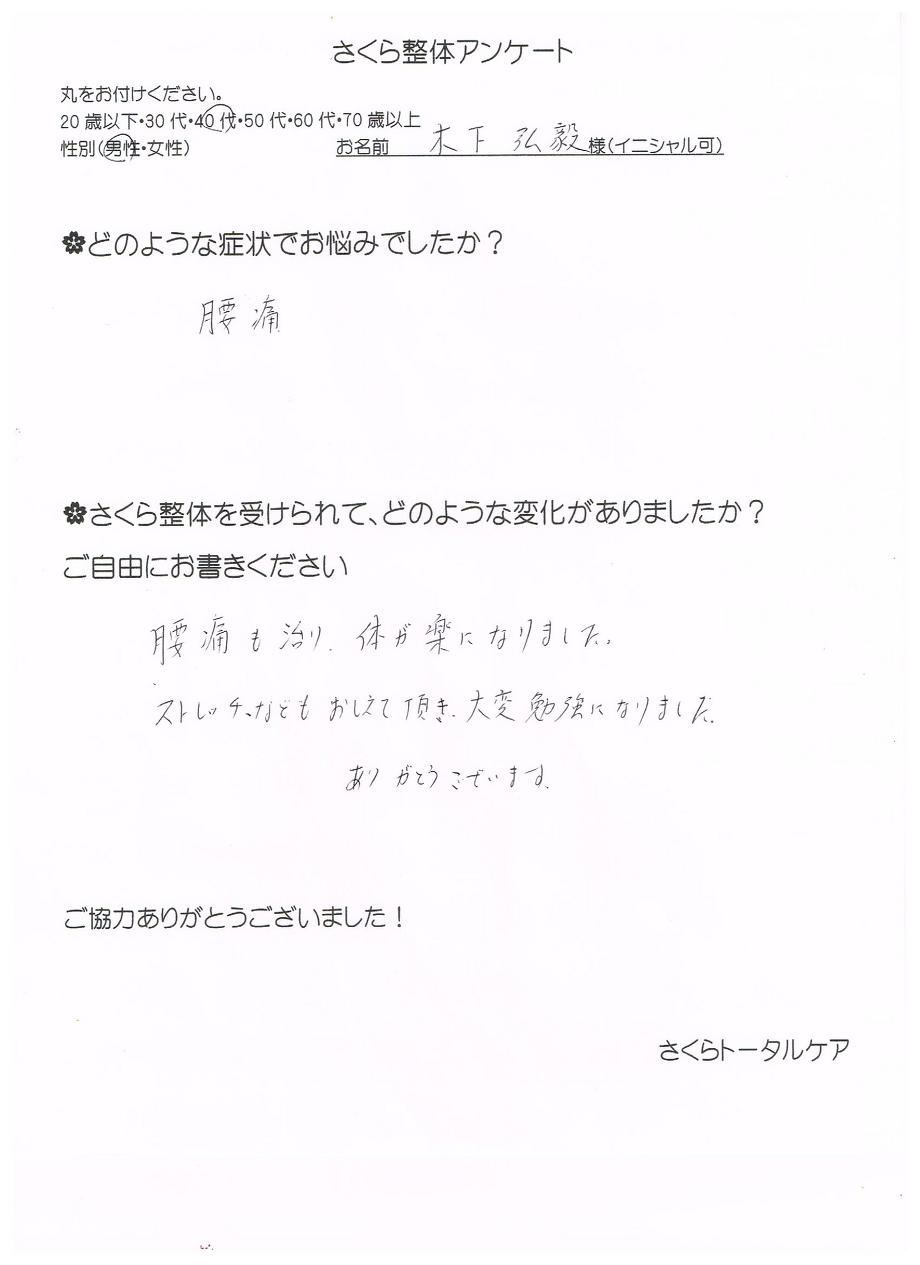 さくら整体アンケート
丸をお付けください。
20歳以下・30代・40代・50代・60代・70歳以上
性別(男性・女性) お名前 木下 弘毅 様(イニシャル可)
どのような症状でお悩みでしたか？
腰痛
さくら整体を受けられて、どのような変化がありましたか？
ご自由にお書きください
腰痛も治り、体が楽になりました。
ストレッチなどもおしえて頂き、大変勉強になりました。
ありがとうございます。
ご協力ありがとうございました！
さくらトータルケア